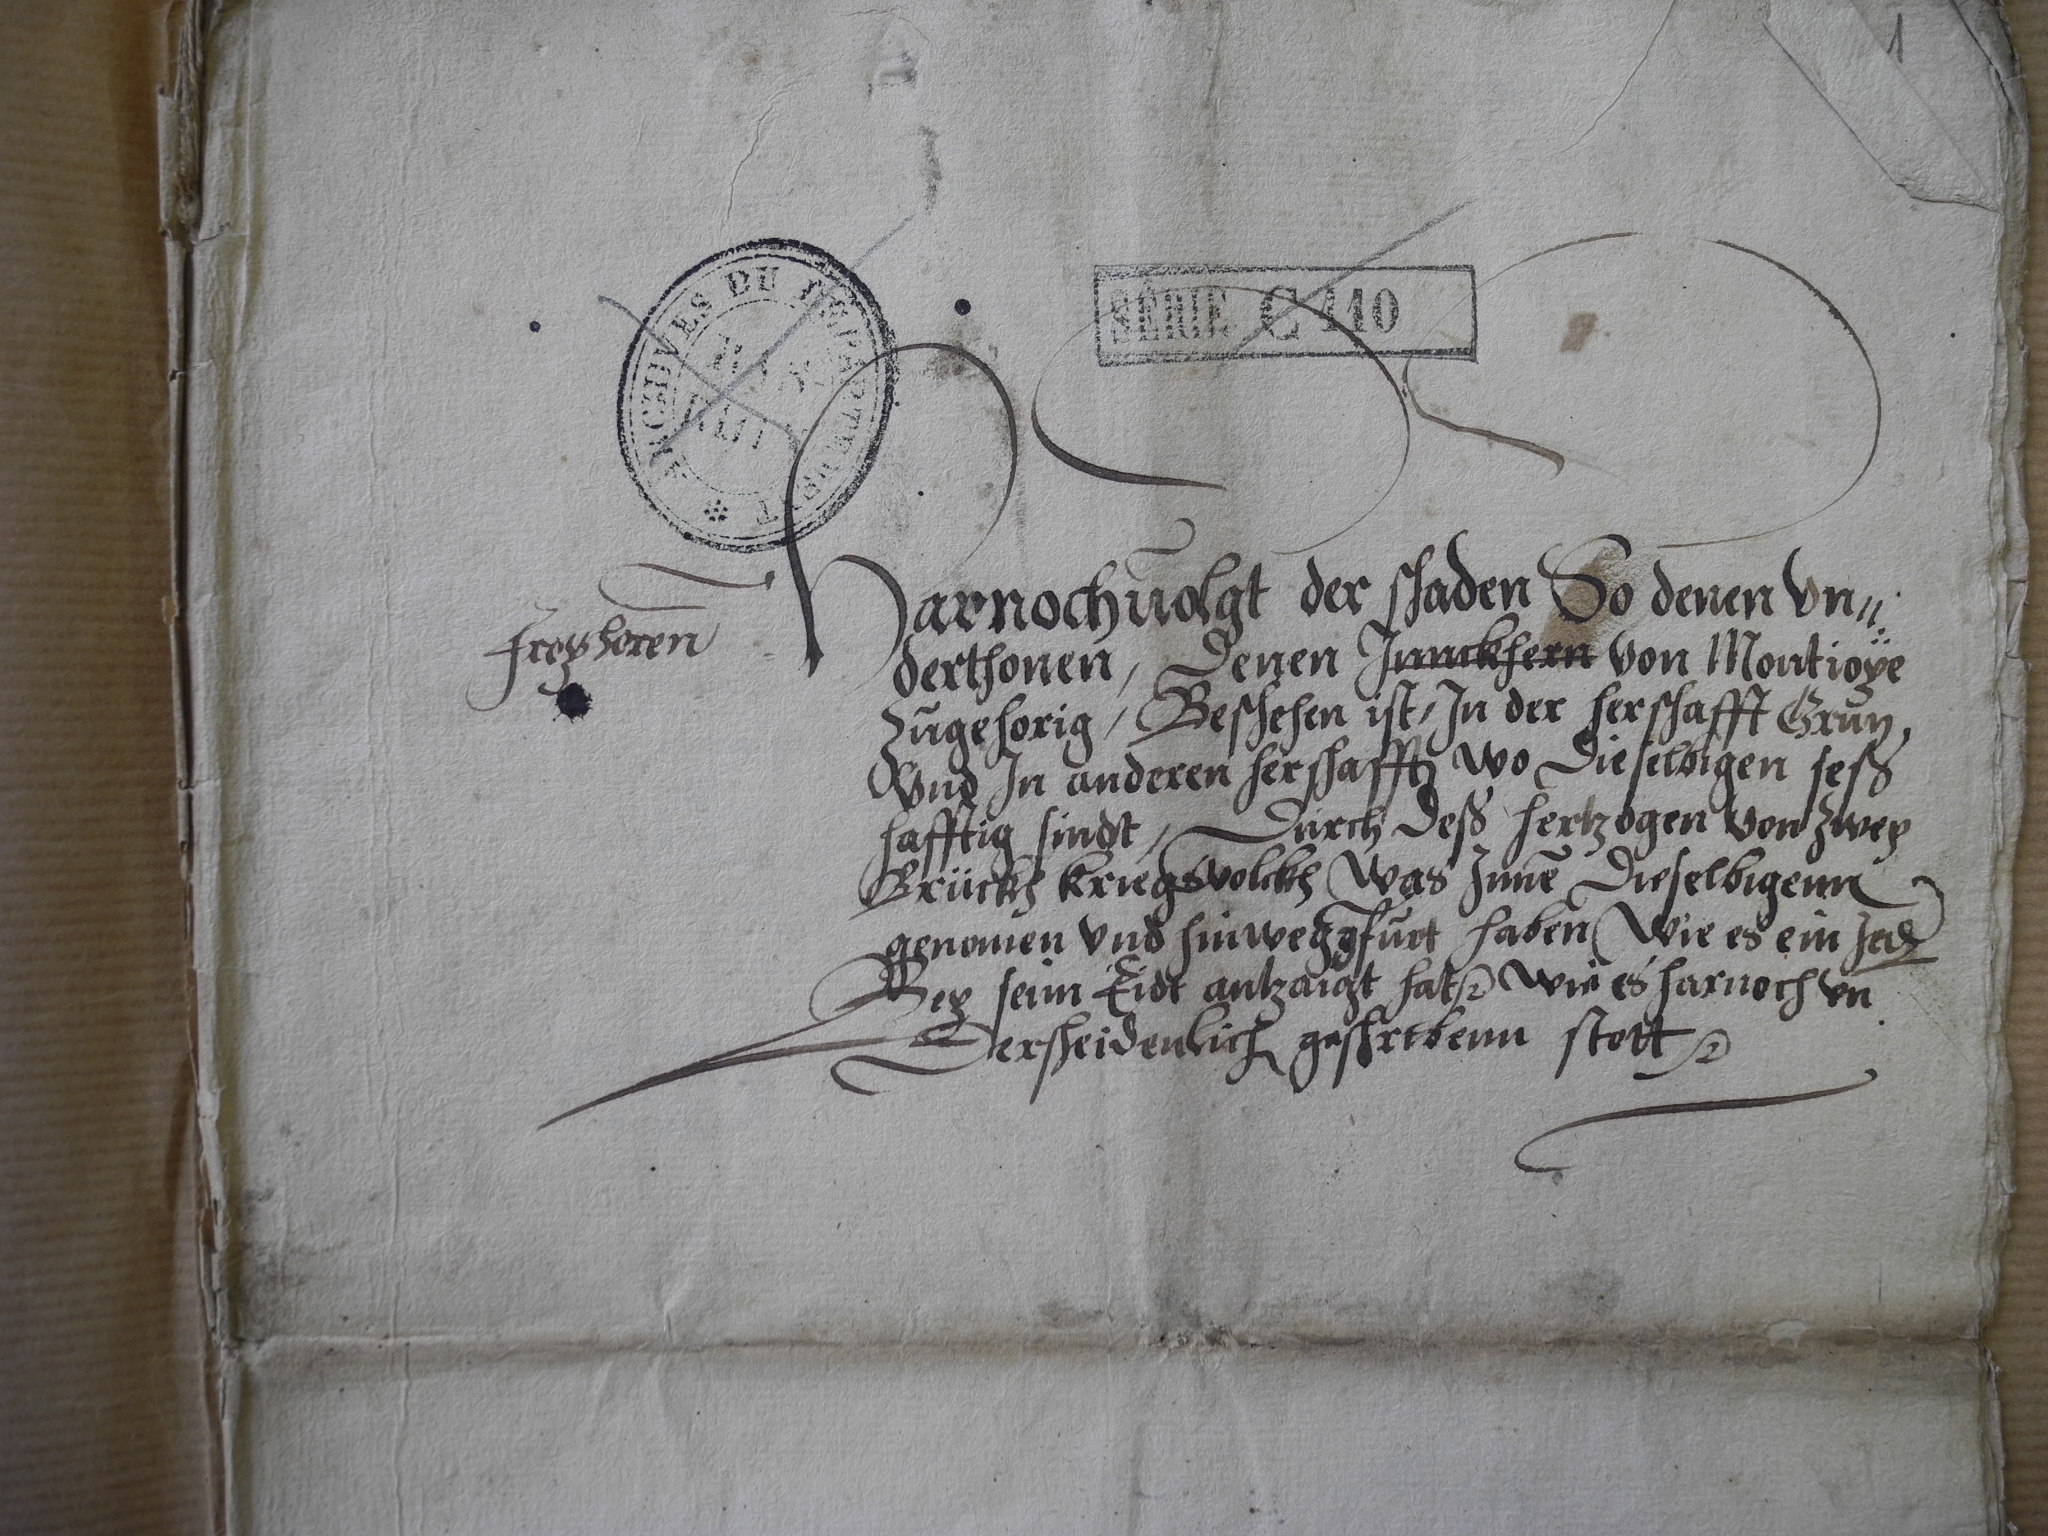 1
ARCHIVES DU DEPARTEMENT
HAUT RHIN
SÉRIE C 110
Harnochuolgt der schaden So denen vn//
freyheren
derthonen, Denen Junckhern von Montioÿe
Zugehorig, Beschehen ist, In der herschafft Brun,
Vnd In anderen herschafft wo Dieselbigen seß
hafftig sindt, Durch deß hertzogen von Zwey
Brückh kriegsvolckh was Innē Dieselbigenn
genomen vnd hinweggfürt haben wie es ein Jed
Bey seim Eidt antzaigt hat wie es harnoch vn
derscheidenlich geschribenn stott